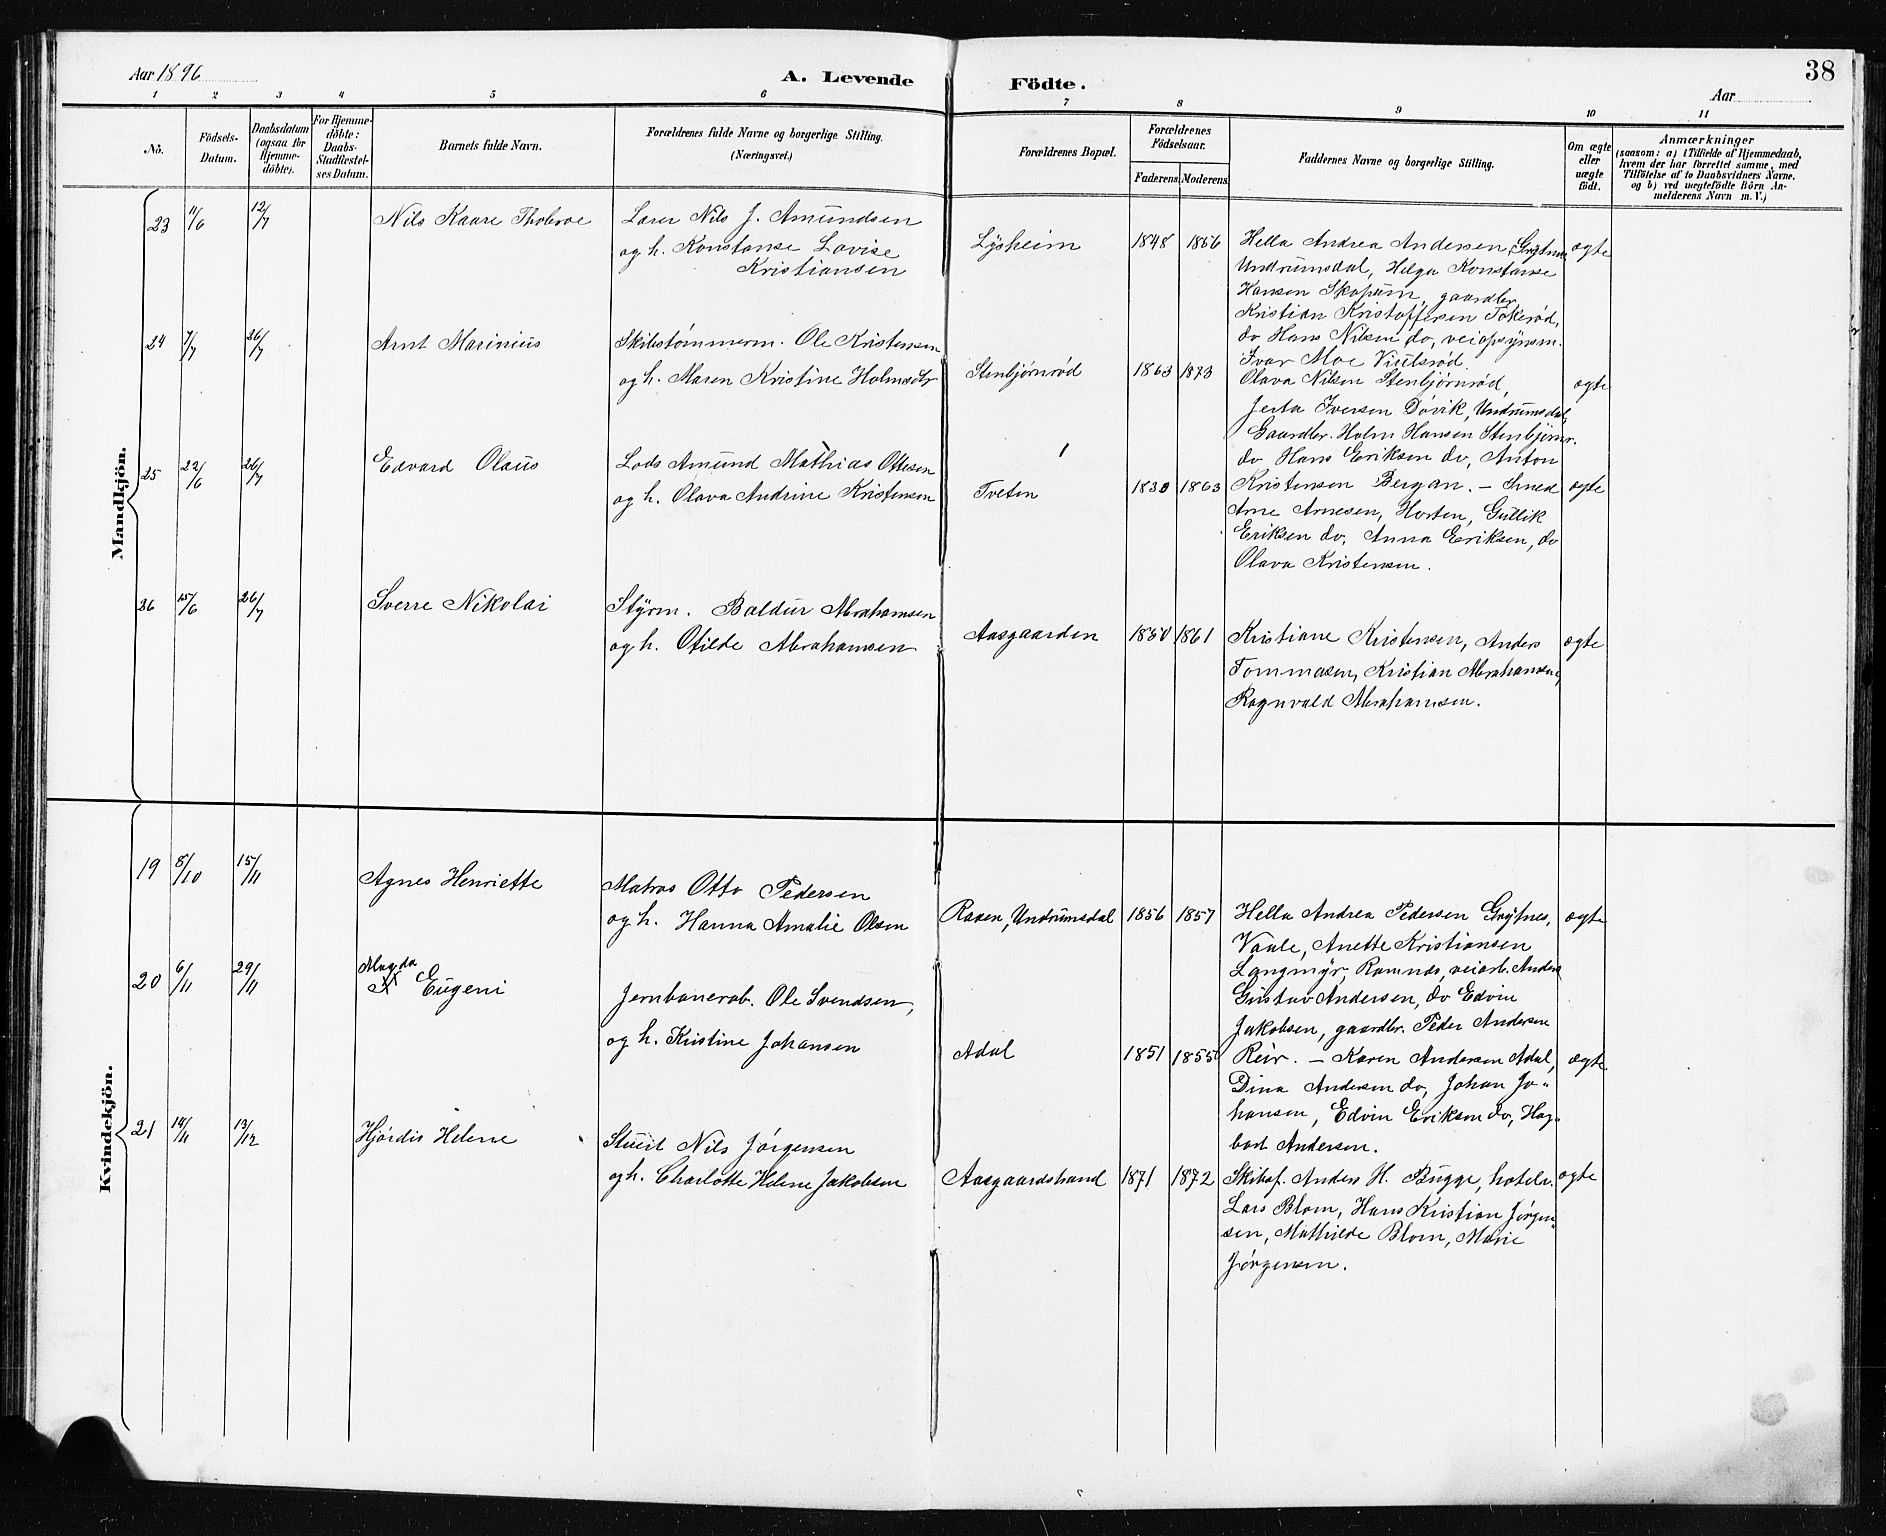 Aar 1896
A. Levende
Födte.
38
Aar
1 2 3 4 5 6 7 8 9 10 11
No.
Födsels-
Datum.
Daabsdatum
(ogsaa for
Hjemme-
döbte).
For Hjemme-
döbte:
Daabs-
Stadfæstel-
ses Datum.
Barnets fulde Navn.
Forældrenes fulde Navne og borgerlige Stilling.
(Næringsvei.)
Forældrenes Bopæl.
Forældrenes
Födselsaar.
Faderens.
Moderens.
Faddernes Navne og borgerlige Stilling.
Om ægte
eller
uægte
födt.
Anmærkninger
(saasom: a) i Tilfælde af Hjemmedaab,
hvem der har forrettet samme, med
Tilföielse af to Daabsvidners Navne,
og b) ved uægtefödte Börn An-
melderens Navn m. V.)
Mandkjön.
23 11/6 12/7 Nils Kaare
Lærer Nils J. Amundsen
og h. Konstanse Lovise
Kristiansen
Lysheim 1848 1856
Hella Andrea Andersen, Grytnes
Undrumsdal, Helga Konstanse
Hansen Skopum, gaardbr.
Kristian Kristoffersen Tokerød,
do Hans Nilsen do, veiopsynsm.
Ivar Moe Viulsrød.
ægte
24 7/7 26/7 Arnt Marinius
Skibstømmerm. Ole Kristensen
og h. Maren Kristine Holmsdtr
Stenbjørnrød 1863 1873
Olava Nilsen Stenbjørnrød,
Jerta Iversen Døvik, Undrumsdal,
Gaardbr. Holm Hansen Stenbjørnr.
do Hans Eriksen do, Anton
Kristensen Bergan. –
ægte
25 22/6 26/7 Edvard Olaus
Lods Amund Mathias Ottesen
og h. Olava Andrine Kristensen
Tveten 1830 1863
Smed
Arne Arnesen, Horten, Gullik
Eriksen do, Anna Eriksen, do
Olava Kristensen.
ægte
26 15/6 26/7 Sverre Nikolai
Styrm. Baldur Abrahamsen
og h. Otilde Abrahamsen
Aasgaarden 1850 1861
Kristiane Kristensen, Anders
Tommasen, Kristian Abrahamsen,
Ragnvald Abrahamsen.
ægte
Kvindekjön.
19 8/10 15/11 Agnes Henriette
Matros Otto Pedersen
og h. Hanna Amalie Olsen
Rasen, Undrumsdal 1856 1857
Hella Andrea Pedersen Grytnes,
Vaale, Anette Kristiansen
Langmyr, Ramnes, veiarb. Anders
Gustav Andersen, do Edvin
Jakobsen, gaardbr. Peder Andersen
Reir. –
ægte
20 6/11 29/11 Magda
Eugeni
Jernbanearb. Ole Svendsen,
og h. Kristine Johansen
Adal 1851 1855
Karen Andersen Adal,
Dina Andersen do, Johan Jo-
hansen, Edvin Eriksen do, Hag-
bart Andersen.
ægte
21 14/11 13/12 Hjørdis Helene
Stuert Nils Jørgensen
og h. Charlotte Helene Jakobsen
Aasgaardstrand 1871 1872
Skibsf. Anders H. Bugge, hotelv.
Lars Blom, Hans Kristian Jørgen-
sen, Mathilde Blom, Marie
Jørgensen.
ægte